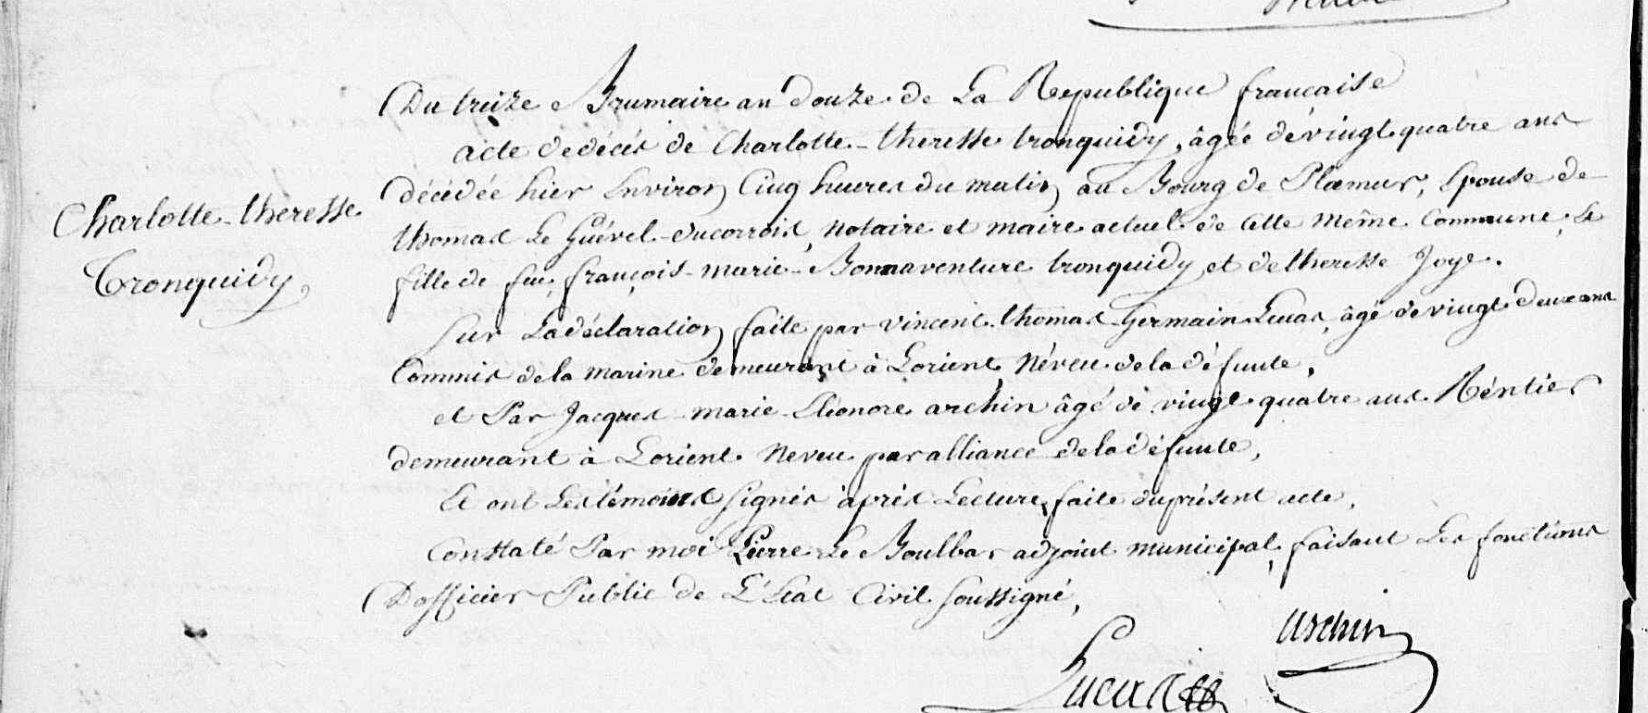 Du treize Brumaire an douze de La Republique francaise
acte de décés de Charlotte-theresse tronquidy, âgée de vingt quatre ans
décédée hier Environ Cinq heures du matin au Bourg de Ploemur, Epouse de
Charlotte-theresse
thomas Le Guével-ducorrois, notaire et maire actuel de Cette même Commune, &
Tronquidy,
fille de feu, françois-marie-Bonnaventure tronquidy, et de theresse Joye.
Sur La déclaration faite par vincent-thomas-Germain Lucas, âgé de vingt deux ans
Commis de la marine demeurant à Lorient, Néveu de la défunte,
et Par Jacques-marie-Eléonore archin âgé de vingt-quatre ans Réntier
demeurant à Lorient. Neveu par alliance de la défunte,
Et ont Les témoins Signés après Lecture faite du présent acte,
Constaté Par moi Pierre Le Boulbar adjoint municipal, faisant Les fonctions
D'officier Public de L'Etat Civil Soussigné,
archin
Lucas